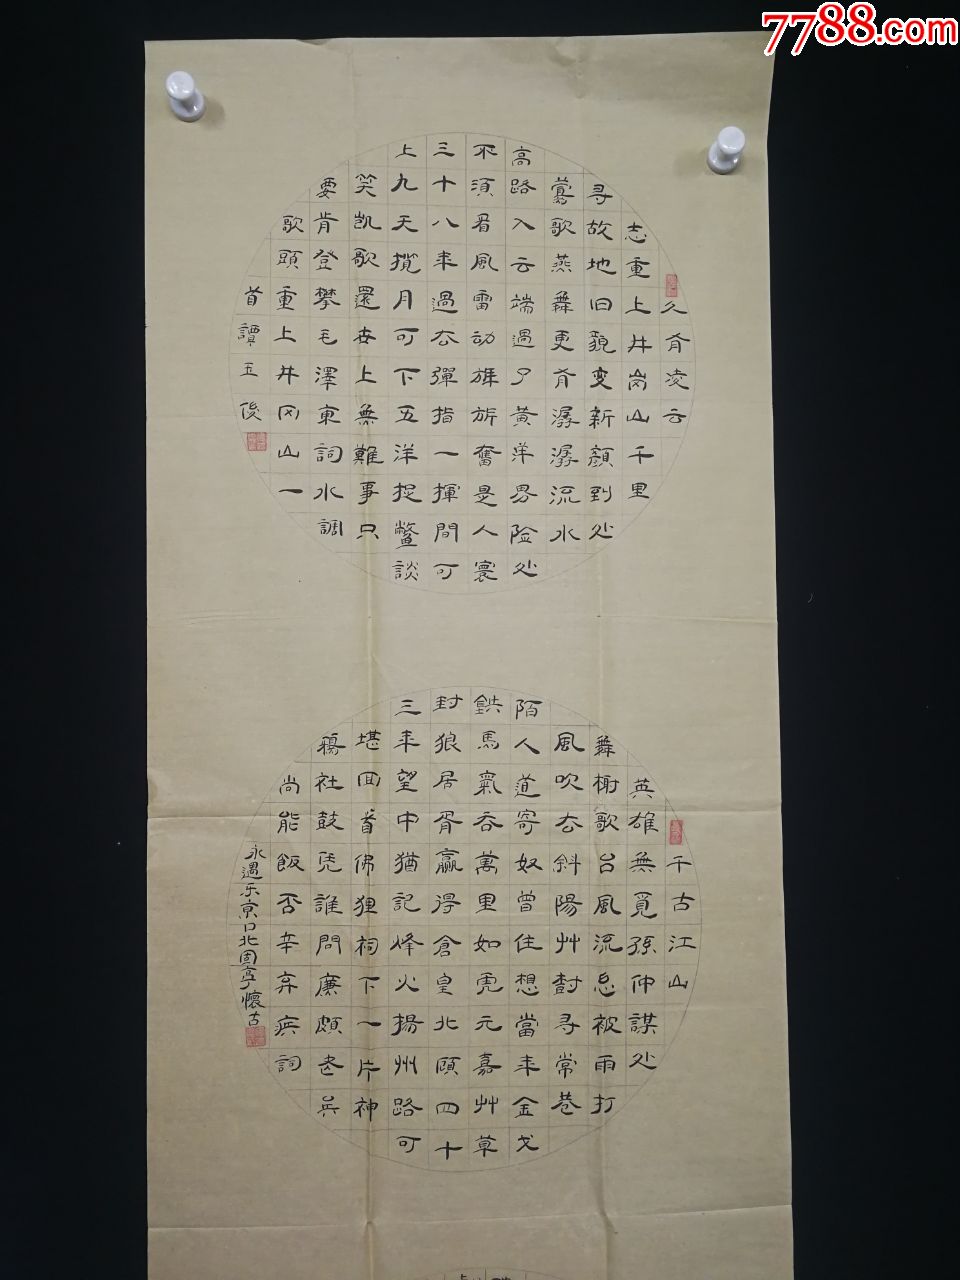 7788.com
久有凌云
志重上井岗山千里
寻故地旧貌变新颜到处
莺歌燕舞更有潺潺流水
高路入云端過了黄洋界险处
不须看風雷动旌旂奮是人寰
三十八年過去彈指一揮間可
上九天揽月可下五洋捉鳖談
笑凯歌還世上無難事只
要肯登攀毛澤東詞水調
歌頭重上井冈山一
首譚五後
千古江山
英雄無覓孫仲謀处
舞榭歌台風流总被雨打
風吹去斜陽艸樹寻常巷
陌人道寄奴曾住想當年金戈
鉄馬氣吞萬里如虎元嘉艸草
封狼居胥贏得倉皇北頋四十
三年望中猶記烽火揚州路可
堪囬首佛狸祠下一片神
鴉社鼓凭誰問廉頗老矣
尚能飯否辛弃疾詞
永遇乐京口北固亭懷古